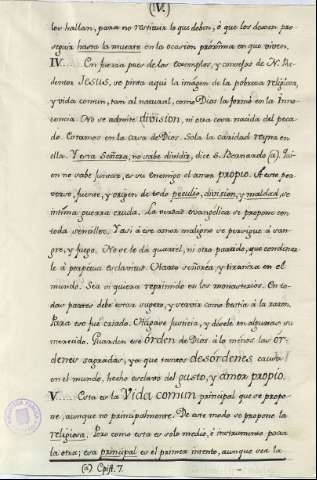 (IV.)
los hallan, para no restituir lo que deben, ó que los dexen pro-
seguir hasta la muerte en la ocasion próxîma en que viven.
IV.... En fuerza pues de los exemplos, y consejos de N. Re-
dentor JESUS, se pinta aquí la imágen de la pobreza religiosa,
y vida comun, tan al natural, como Dios la formó en la Inno-
cencia. No se admite division, ni otra cosa nacida del peca-
do. Estamos en la casa de Dios. Sola la caridad reyna en
ella. Y esta Señora, no sabe dividir, dice S. Bernardo (a).
en no sabe juntar, es su enemigo el amor propio. A este per-
verso, fuente, y orígen de todo peculio, division, y maldad, se
intíma guerra cruda. La verdad evangélica se propone con
toda sencillez. Y así á ese amor maligno se persigue á san-
gre, y fuego. No se le dá quartel, ni otro partido, que condenar-
le á perpetua esclavitud. Harto señoréa, y tiraniza en el
mundo. Sea si quiera reprimido en los monasterios. En to-
das partes debe estar sujeto, y servir como bestia á la razon.
Para eso fué criado. Hágase justicia, y désele en algunas su
merecido. Guarden ese órden de Dios á lo ménos las or-
denes sagradas, ya que tantos desórdenes causa
en el mundo, hecho esclavo del gusto, y amor propio.
V.... Esta es la Vida comun principal que se propo-
ne, aunque no principalmente. De este modo se propone la
religiosa. Pero como esta es solo medio, é instrumento para
la otra; esa principal es el primer intento, aunque sea la
(a) Epist. 7.